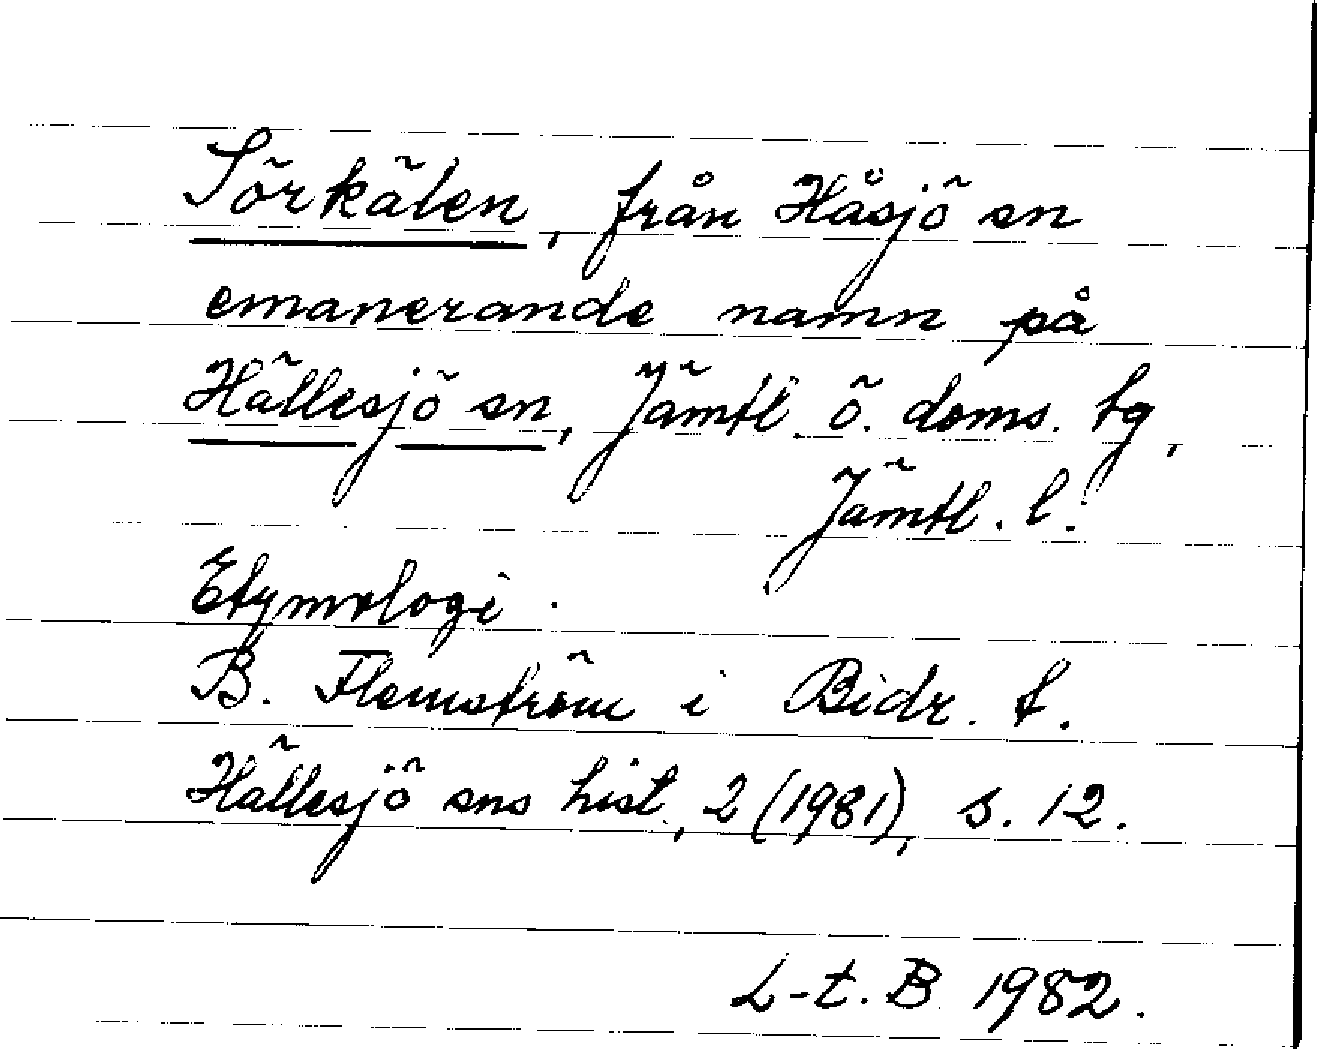 Sörkälen, från Håsjö sn
emanerande namn på
Hällesjö sn, Jämtl. ö. doms. tg,
Jämtl. l.
Etymologi.
B. Flemström i Bidr. t.
Hällesjö sns hist., 2 (1981), s. 12.
L-t. B 1982.